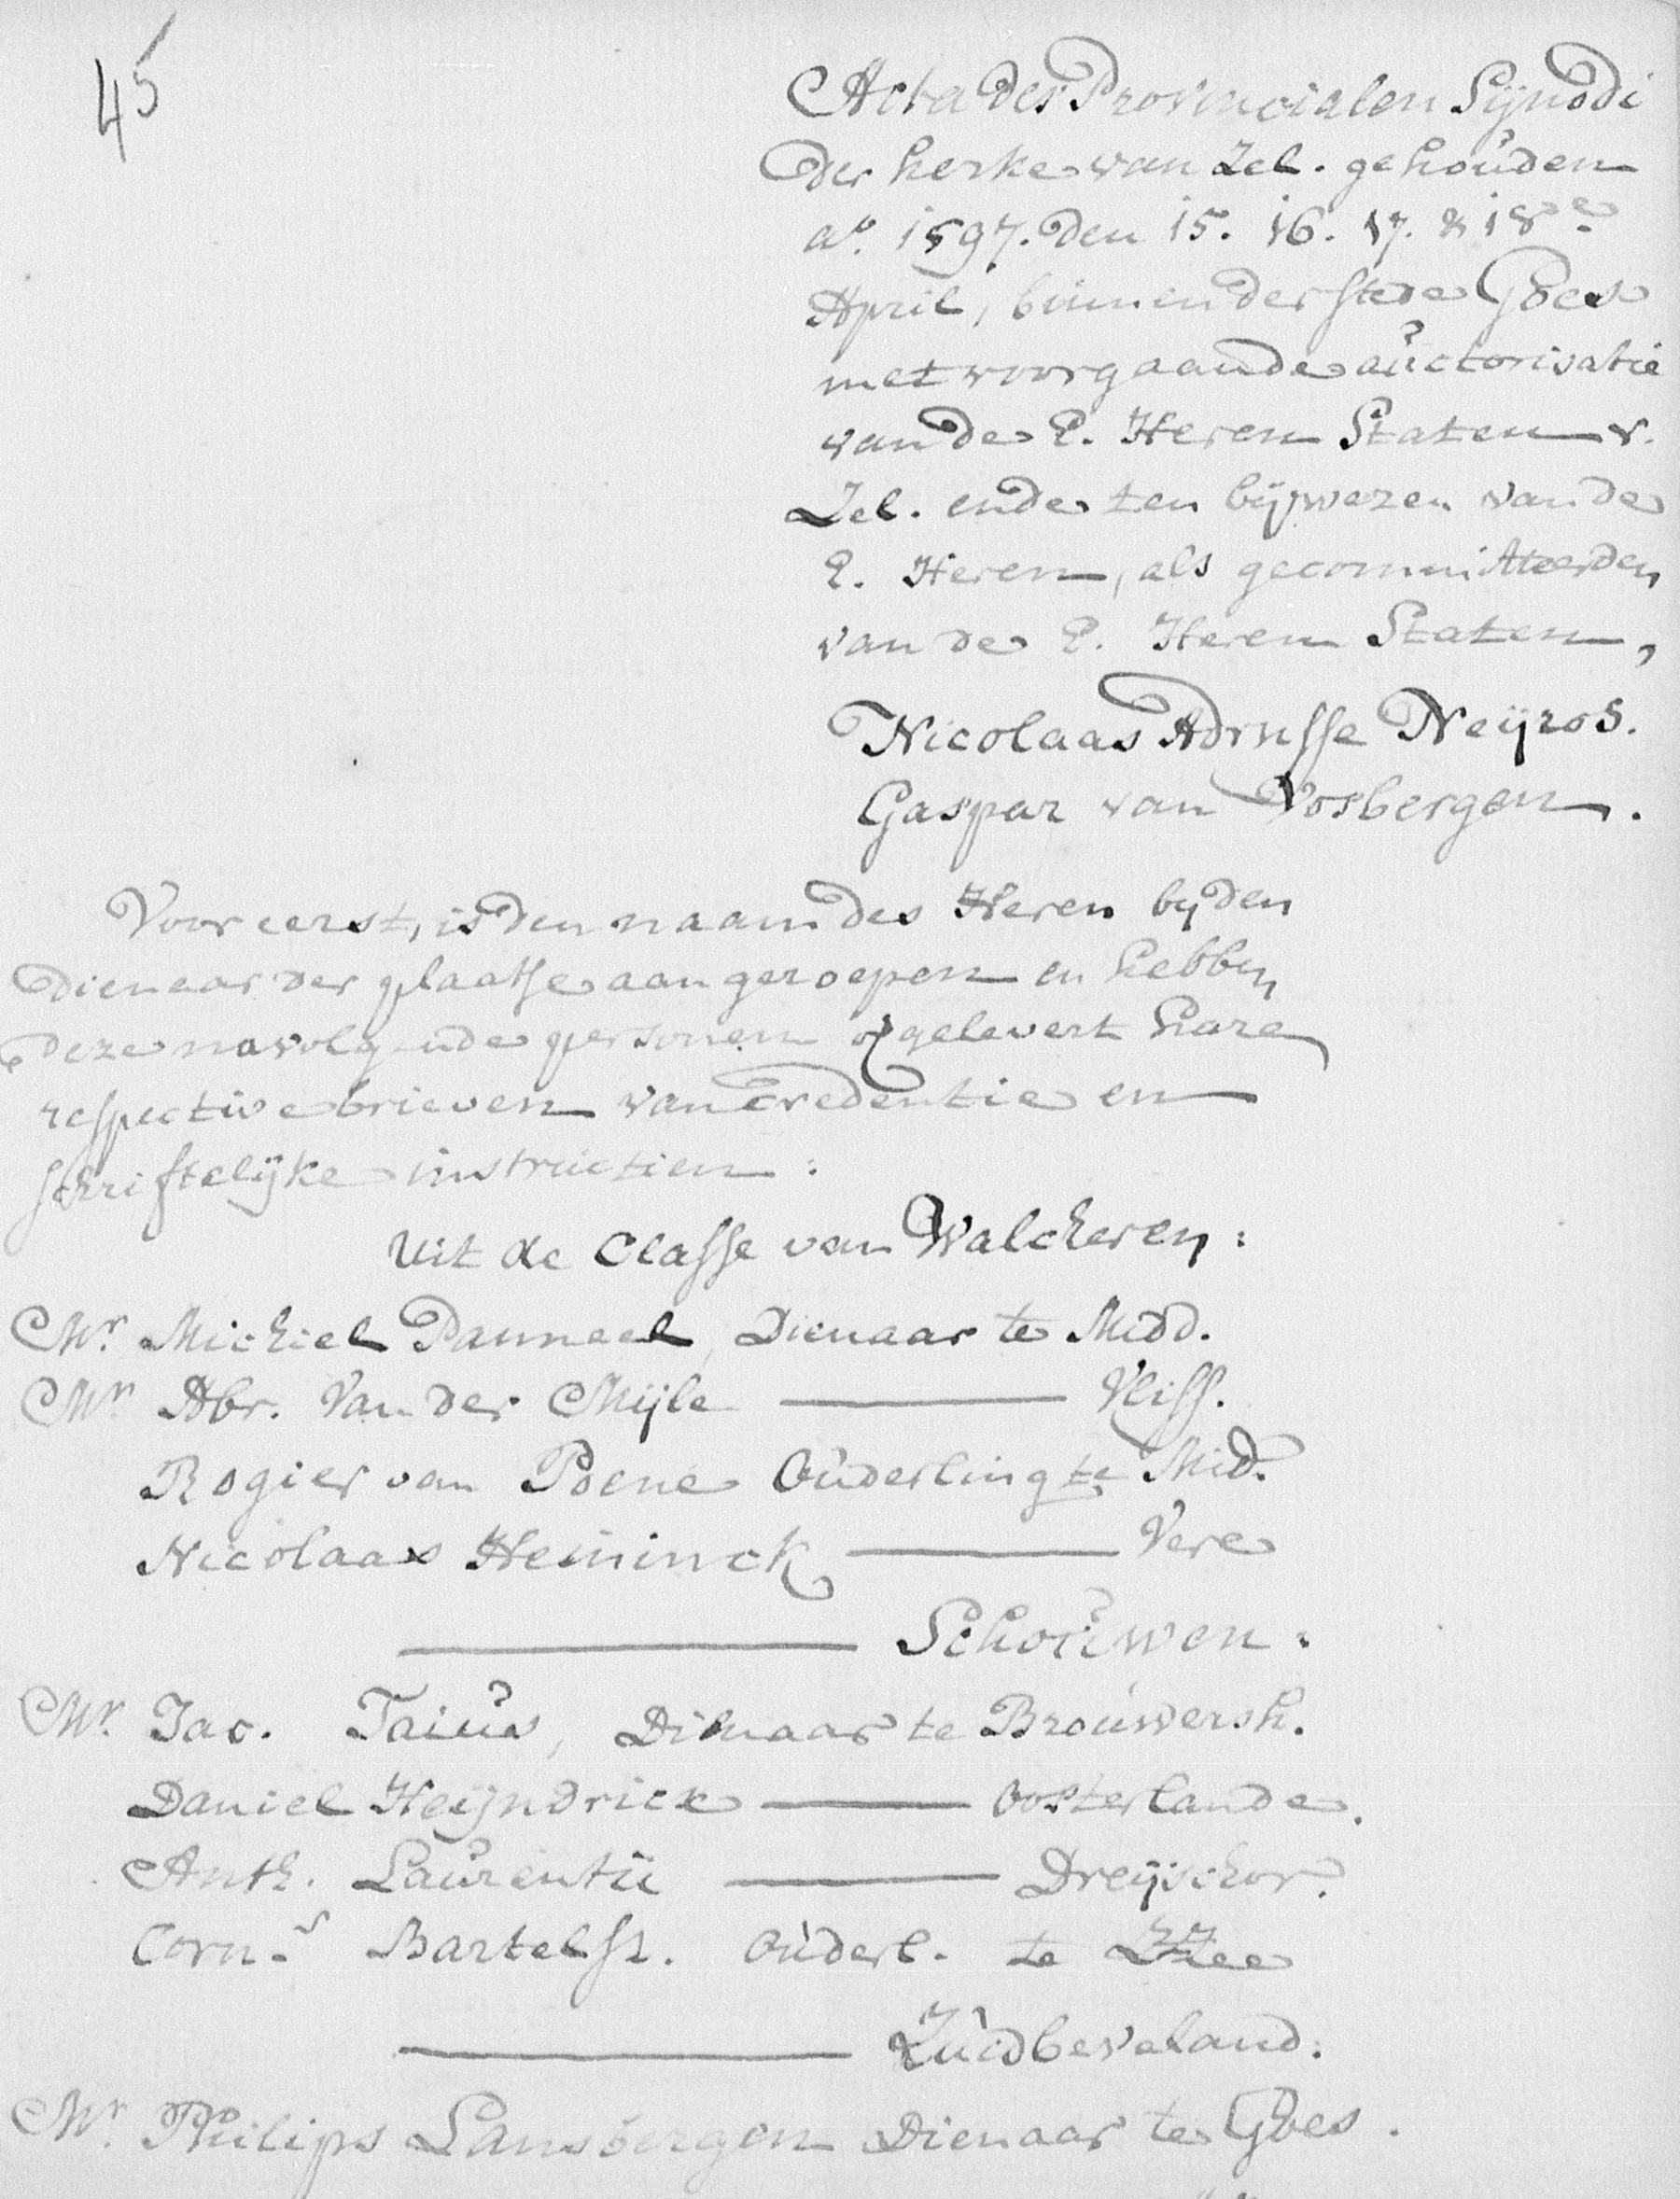 45
Acta des Provincialen Sijnodi
der kerke van Zel. gehouden
a.o 1597. den 15. 16. 17. & 18.e
April, binnen der stede Goes
met voorgaande auctorisatie
van de E. Heren Staten v.
Zel. ende ten bijwezen van de
E. Heren, als gecommitteerden
van de E. Heren Staten,
Nicolaas Adrusse Meijros.
Gaspar van Vosbergen.
Voor eerst, is den naam des Heren bij den
dienaar der plaatse aangeroepen en hebben
deze navolgende personen opgelevert hare
respective brieven van credentie en
schriftelijke instructien:
Uit de Classe van Walcheren:
Mr. Michiel Panneel, Dienaar te Midd.
Mr. Abr. Van der Mijle ——— Vliss.
Rogier van Poene Ouderling te Mid.
Nicolaas Heninck ——— Vere
——— Schouwen:
Mr. Jac. Taius, Dienaar te Brouwersh.
Daniel Heijndrick ——— Oosterlande.
Anth. Laurentii ——— Dreijschor.
Corn.s Bartelsz. Ouderl. te ZZee
——— Zuidbeveland:
Mr. Philips Lansbergen Dienaar te Goes.